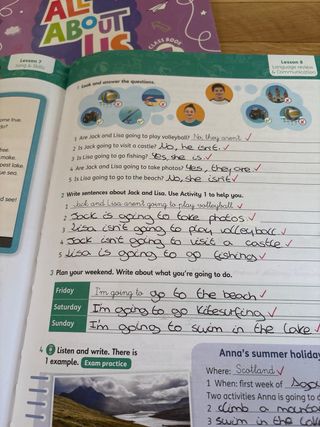 ALL
ABOUT
US
CLASS BOOK
Lesson 7
Song & Skills
Lesson 8
Language review
& Communication
1 Look and answer the questions.
1 Are Jack and Lisa going to play volleyball? No, they aren't.
2 Is Jack going to visit a castle? No, he isn't.
3 Is Lisa going to go fishing? Yes, she is.
4 Are Jack and Lisa going to take photos? Yes, they are.
5 Is Lisa going to go to the beach? No, she isn't
2 Write sentences about Jack and Lisa. Use Activity 1 to help you.
1 Jack and Lisa aren't going to play volleyball.
2 Jack is going to take photos.
3 Lisa isn't going to play volleyball.
4 Jack isn't going to visit a castle
5 Lisa is going to go fishing.
3 Plan your weekend. Write about what you're going to do.
Friday I'm going to go to the beach
Saturday I'm going to go kitesurfing
Sunday I'm going to swim in the lake
4 Listen and write. There is
1 example. Exam practice
Anna's summer holiday
Where: Scotland
1 When: first week of
Two activities Anna is going to
2 climb a
3 swim in the